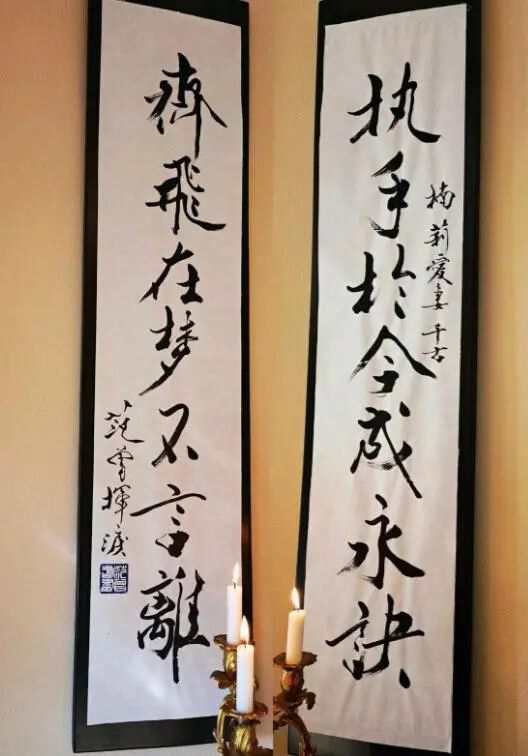 执手於今成永訣
楠莉愛妻千古
齊飛在梦不言離
范曾揮淚